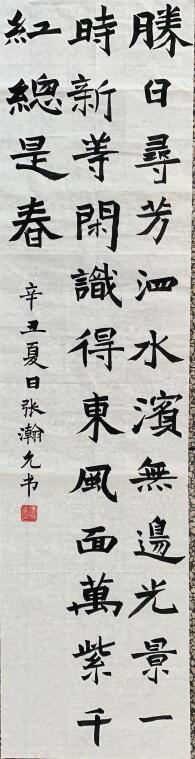 勝日尋芳泗水濱無邊光景一
時新等閑識得東風面萬紫千
紅總是春
辛丑夏日张瀚允书